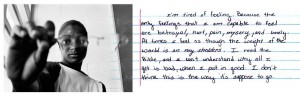 I'm tired of feeling. Because the
only feelings that I am capable to feel
are betrayal, hurt, pain, misery, and lonely.
At times I feel as though the weight of the
world is on my shoulders. I read the
Bible, and I don't understand why all I
get is bad, when I put in good. I don't
think this is the way it's suppose to go